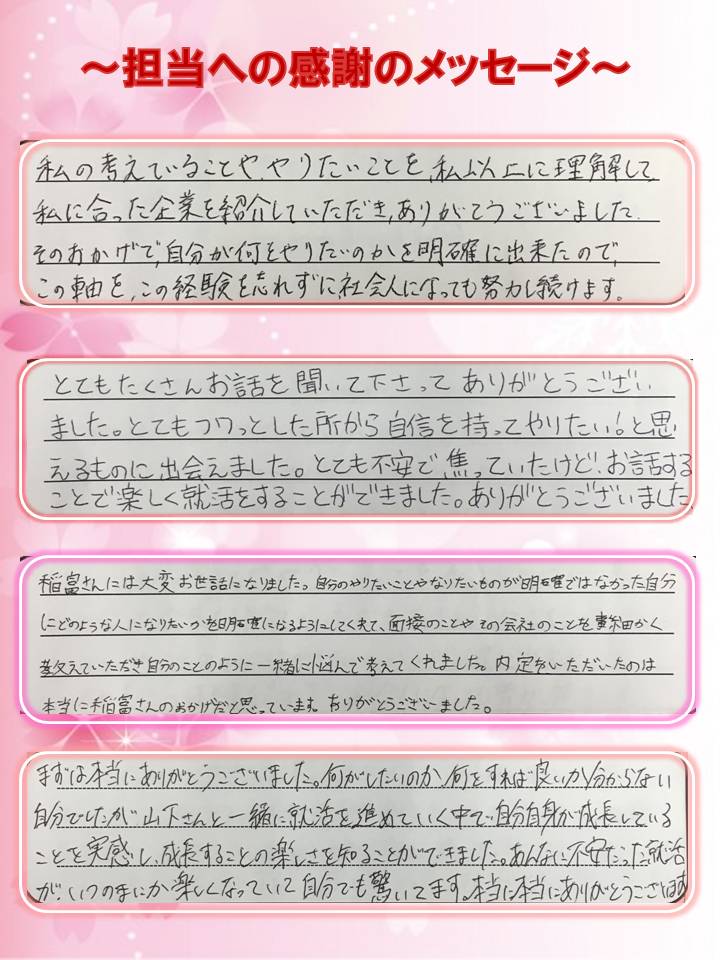 ～担当への感謝のメッセージ～
私の考えていることや、やりたいことを、私以上に理解して、
私に合った企業を紹介していただき、ありがとうございました。
そのおかげで、自分が何をやりたいのかを明確に出来たので、
この軸を、この経験を忘れずに、社会人になっても努力し続けます。
とてもたくさんお話を聞いて下さって ありがとうござい
ました。とてもフワっとした所から自信を持ってやりたい！と思
えるものに出会えました。とても不安で、焦っていたけど、お話する
ことで楽しく就活をすることができました。ありがとうございました
稲富さんには大変お世話になりました。自分のやりたいことやなりたいものが明確ではなかった自分
にどのような人になりたいかを明確になるようにしてくれて、面接のことやその会社のことを事細かく
教えていただき自分のことのように一緒に悩んで考えてくれました。内定をいただいたのは
本当に稲富さんのおかげだと思っています。ありがとうございました。
まずは本当にありがとうございました。何がしたいのか、何をすれば良いか分からない
自分でしたが山下さんと一緒に就活を進めていく中で自分自身が成長している
ことを実感し、成長することの楽しさを知ることができました。あんなに不安だった就活
が、いつのまにか楽しくなっていて自分でも驚いてます。本当に本当にありがとうございます